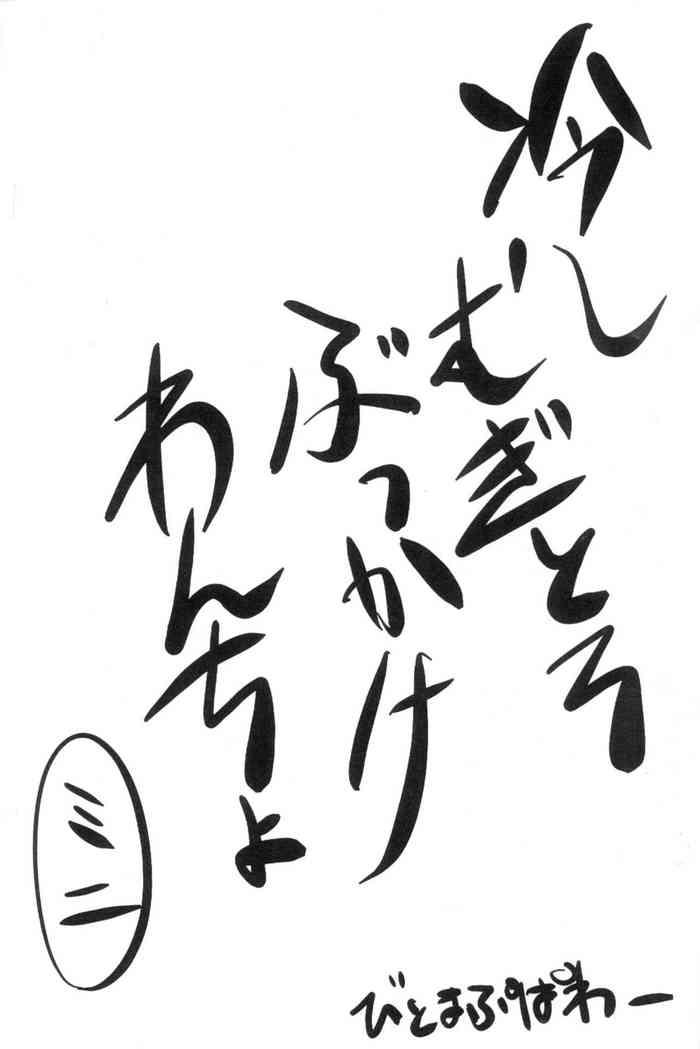 冷し
むぎとろ
ぶっかけ
わんちょ
ミニ
びとまふ゜はわー